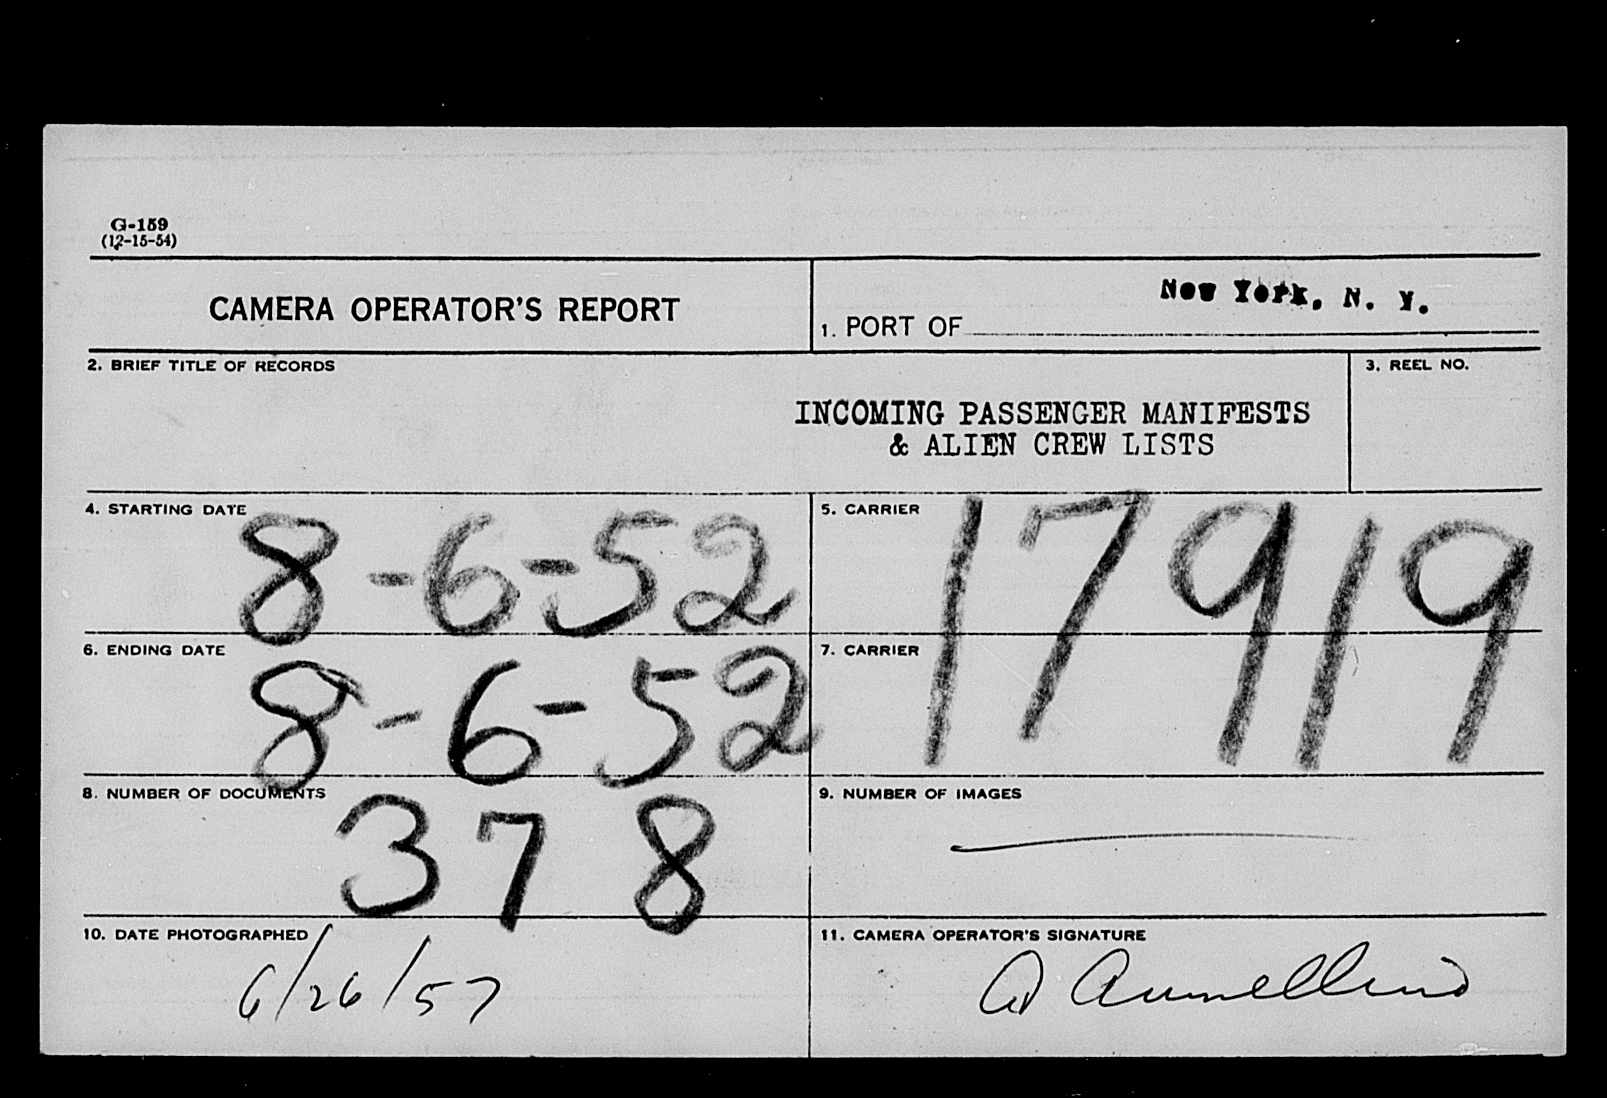 G-159
(12-15-54)
CAMERA OPERATOR'S REPORT
1. PORT OF New York, N. Y.
2. BRIEF TITLE OF RECORDS
INCOMING PASSENGER MANIFESTS
& ALIEN CREW LISTS
3. REEL NO.
4. STARTING DATE
8-6-52
5. CARRIER
17919
6. ENDING DATE
8-6-52
7. CARRIER
8. NUMBER OF DOCUMENTS
378
9. NUMBER OF IMAGES
10. DATE PHOTOGRAPHED
6/26/57
11. CAMERA OPERATOR'S SIGNATURE